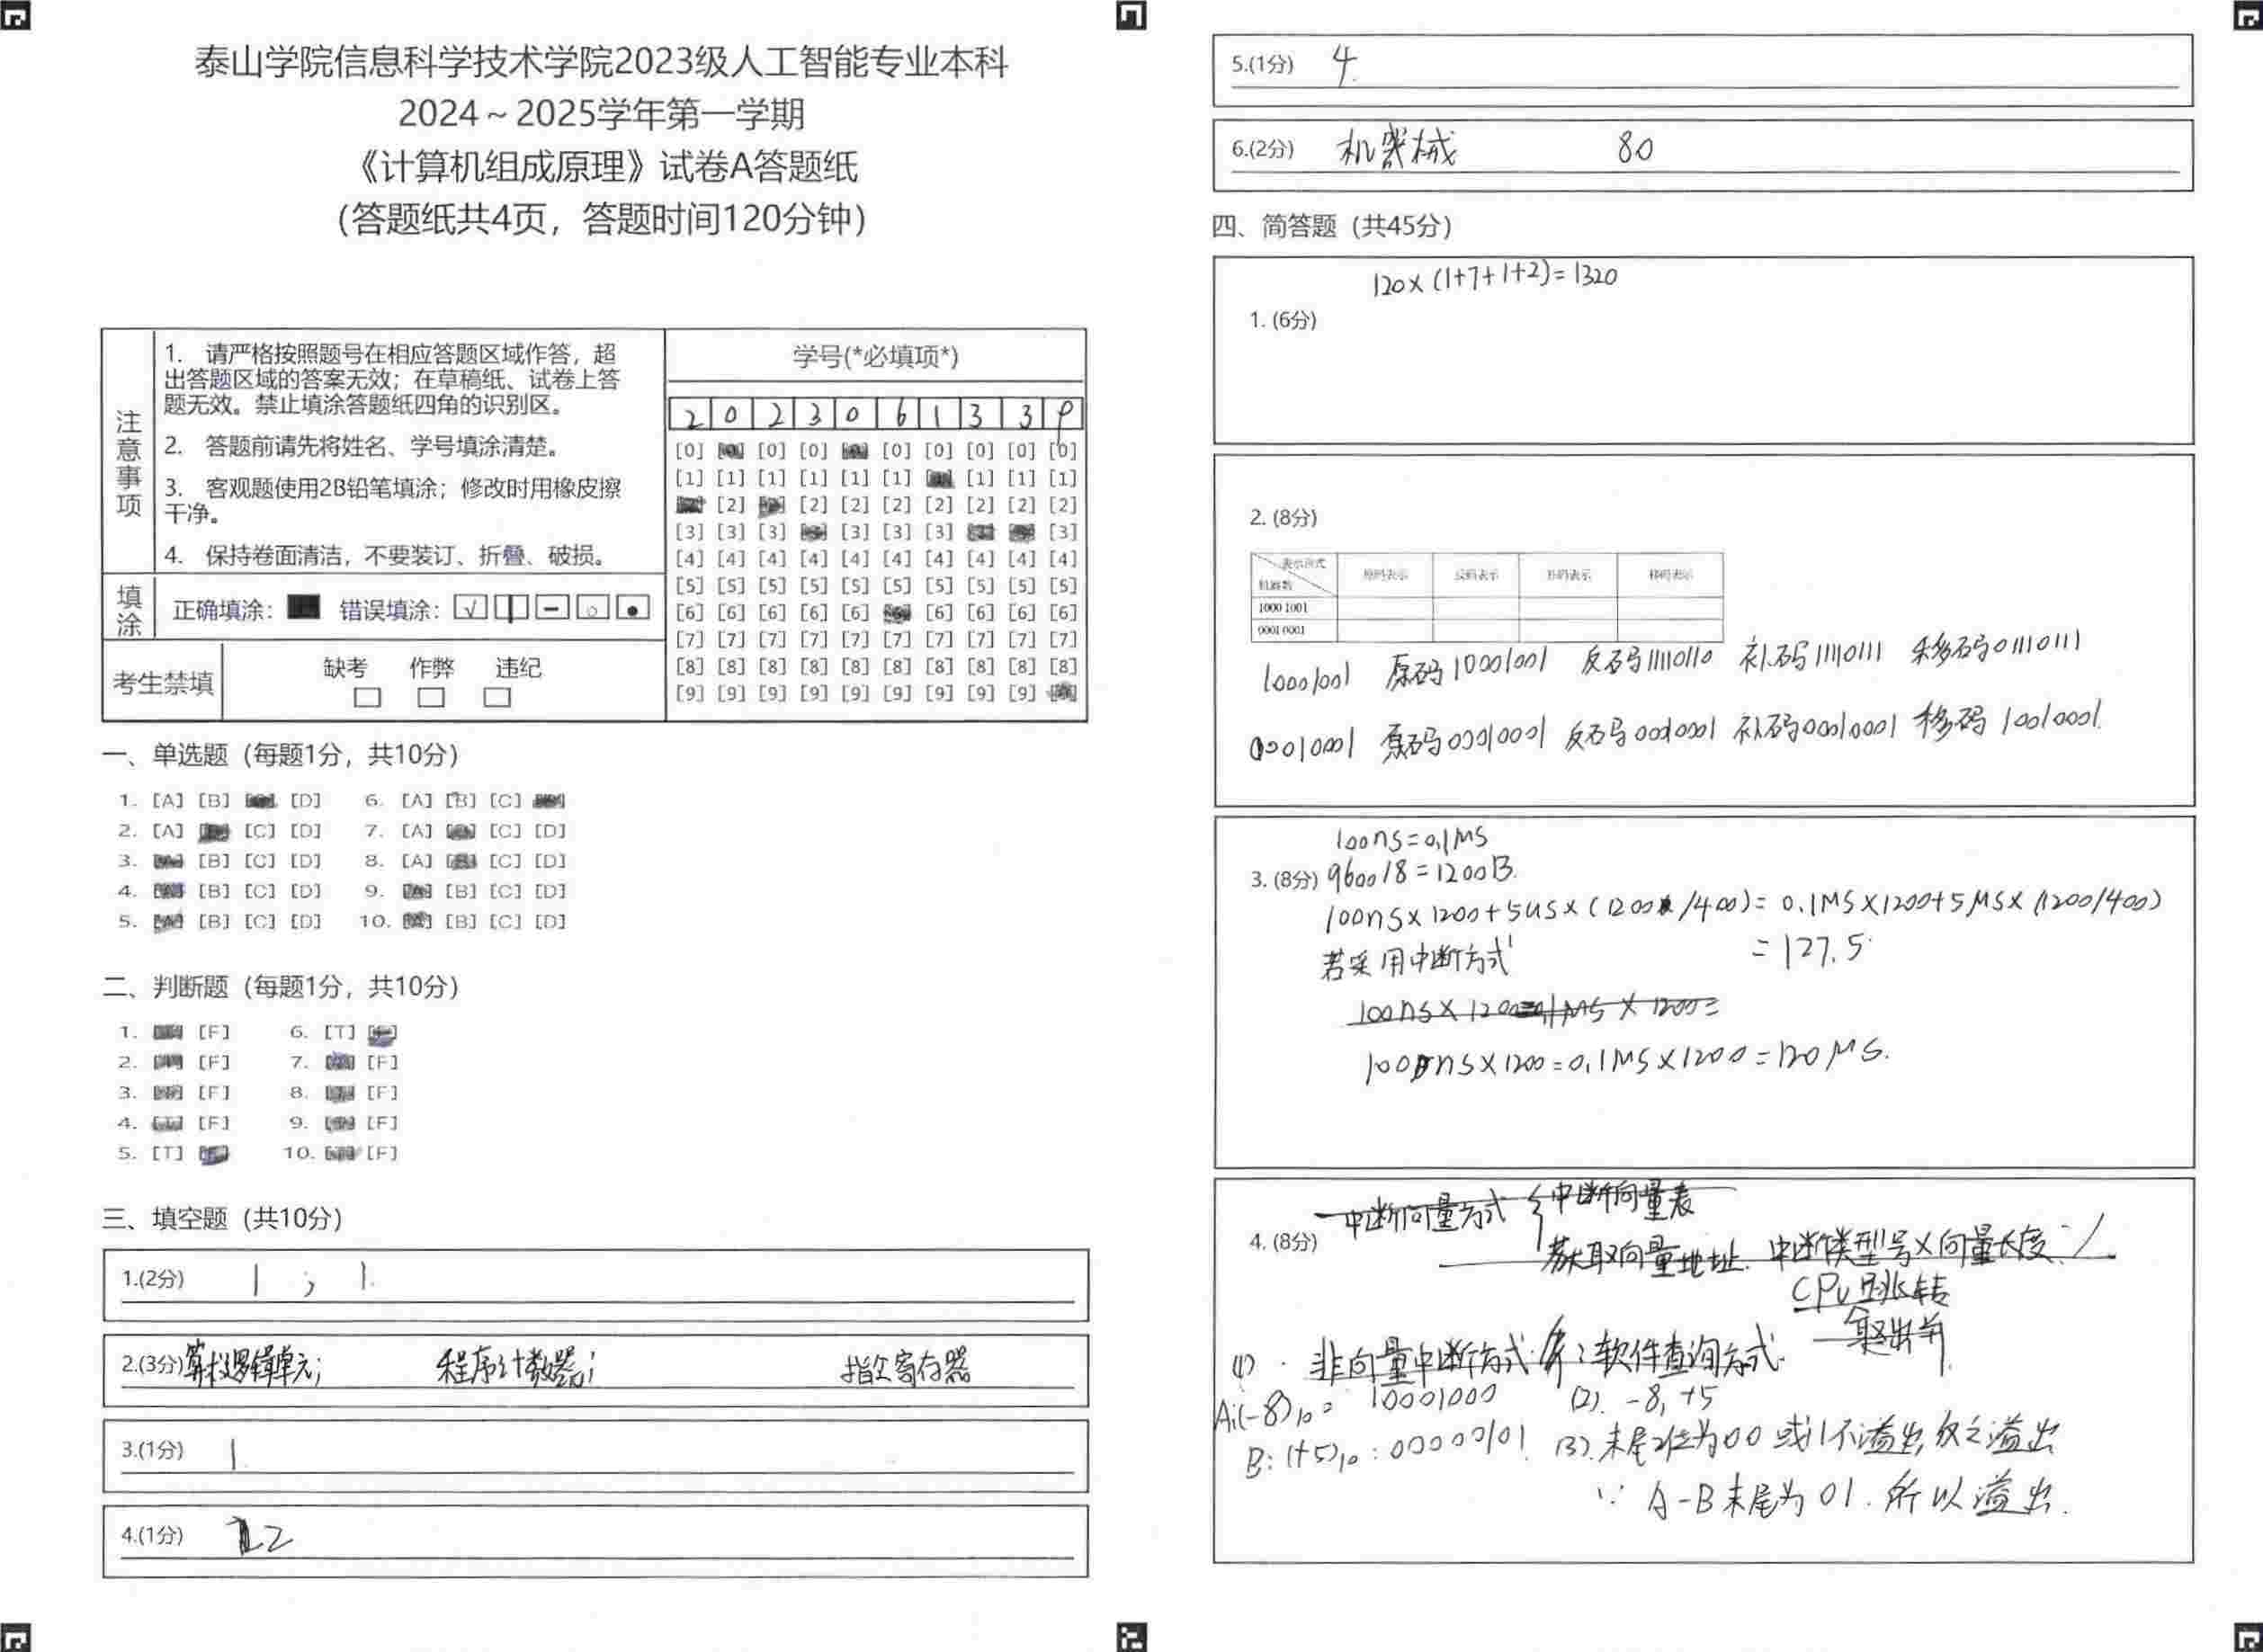 泰山学院信息科学技术学院2023级人工智能专业本科
2024～2025学年第一学期
《计算机组成原理》试卷A答题纸
（答题纸共4页，答题时间120分钟）
注意事项
1. 请严格按照题号在相应答题区域作答，超
出答题区域的答案无效；在草稿纸、试卷上答
题无效。禁止填涂答题纸四角的识别区。
2. 答题前请先将姓名、学号填涂清楚。
3. 客观题使用2B铅笔填涂；修改时用橡皮擦
干净。
4. 保持卷面清洁，不要装订、折叠、破损。
填涂 正确填涂： 错误填涂：
考生禁填 缺考 作弊 违纪
学号(*必填项*)
2 0 2 3 0 6 1 3 3 9
[0] [0] [0] [0] [0] [0] [0] [0]
[1] [1] [1] [1] [1] [1] [1] [1] [1]
[2] [2] [2] [2] [2] [2] [2] [2]
[3] [3] [3] [3] [3] [3] [3]
[4] [4] [4] [4] [4] [4] [4] [4] [4] [4]
[5] [5] [5] [5] [5] [5] [5] [5] [5] [5]
[6] [6] [6] [6] [6] [6] [6] [6] [6]
[7] [7] [7] [7] [7] [7] [7] [7] [7] [7]
[8] [8] [8] [8] [8] [8] [8] [8] [8] [8]
[9] [9] [9] [9] [9] [9] [9] [9] [9]
一、单选题（每题1分，共10分）
1. [A] [B] [D] 6. [A] [B] [C]
2. [A] [C] [D] 7. [A] [C] [D]
3. [B] [C] [D] 8. [A] [C] [D]
4. [B] [C] [D] 9. [B] [C] [D]
5. [B] [C] [D] 10. [B] [C] [D]
二、判断题（每题1分，共10分）
1. [F] 6. [T]
2. [F] 7. [F]
3. [F] 8. [F]
4. [F] 9. [F]
5. [T] 10. [F]
三、填空题（共10分）
1.(2分) 1 ; 1.
2.(3分) 算术逻辑单元; 程序计数器; 指令寄存器
3.(1分) 1
4.(1分) 12
5.(1分) 4
6.(2分) 机器械 80
四、简答题（共45分）
120×(1+7+1+2)=1320
1. (6分)
2. (8分)
表示形式 机器数 原码表示 反码表示 补码表示 移码表示
1000 1001
0001 0001
10001001 原码10001001 反码11110110 补码11110111 移码01110111
00010001 原码00010001 反码00010001 补码00010001 移码10010001
100ns=0.1μs
3. (8分) 9600/8=1200B.
100ns×1200+5us×(1200/400)=0.1μs×1200+5μs×(1200/400)
=127.5
若采用中断方式
100ns×1200=0.1μs×1200=
100ns×1200=0.1μs×1200=120μs.
中断向量方式 中断向量表
4. (8分)
获取向量地址. 中断类型号×向量长度
CPU 跳转
(1) 非向量中断方式: 软件查询方式.
A:(-8)10= 10001000 (2). -8, +5
B:(+5)10: 00000101 (3). 末尾2位为00 或11不溢出,反之溢出
∵ A-B末尾为01. 所以溢出.